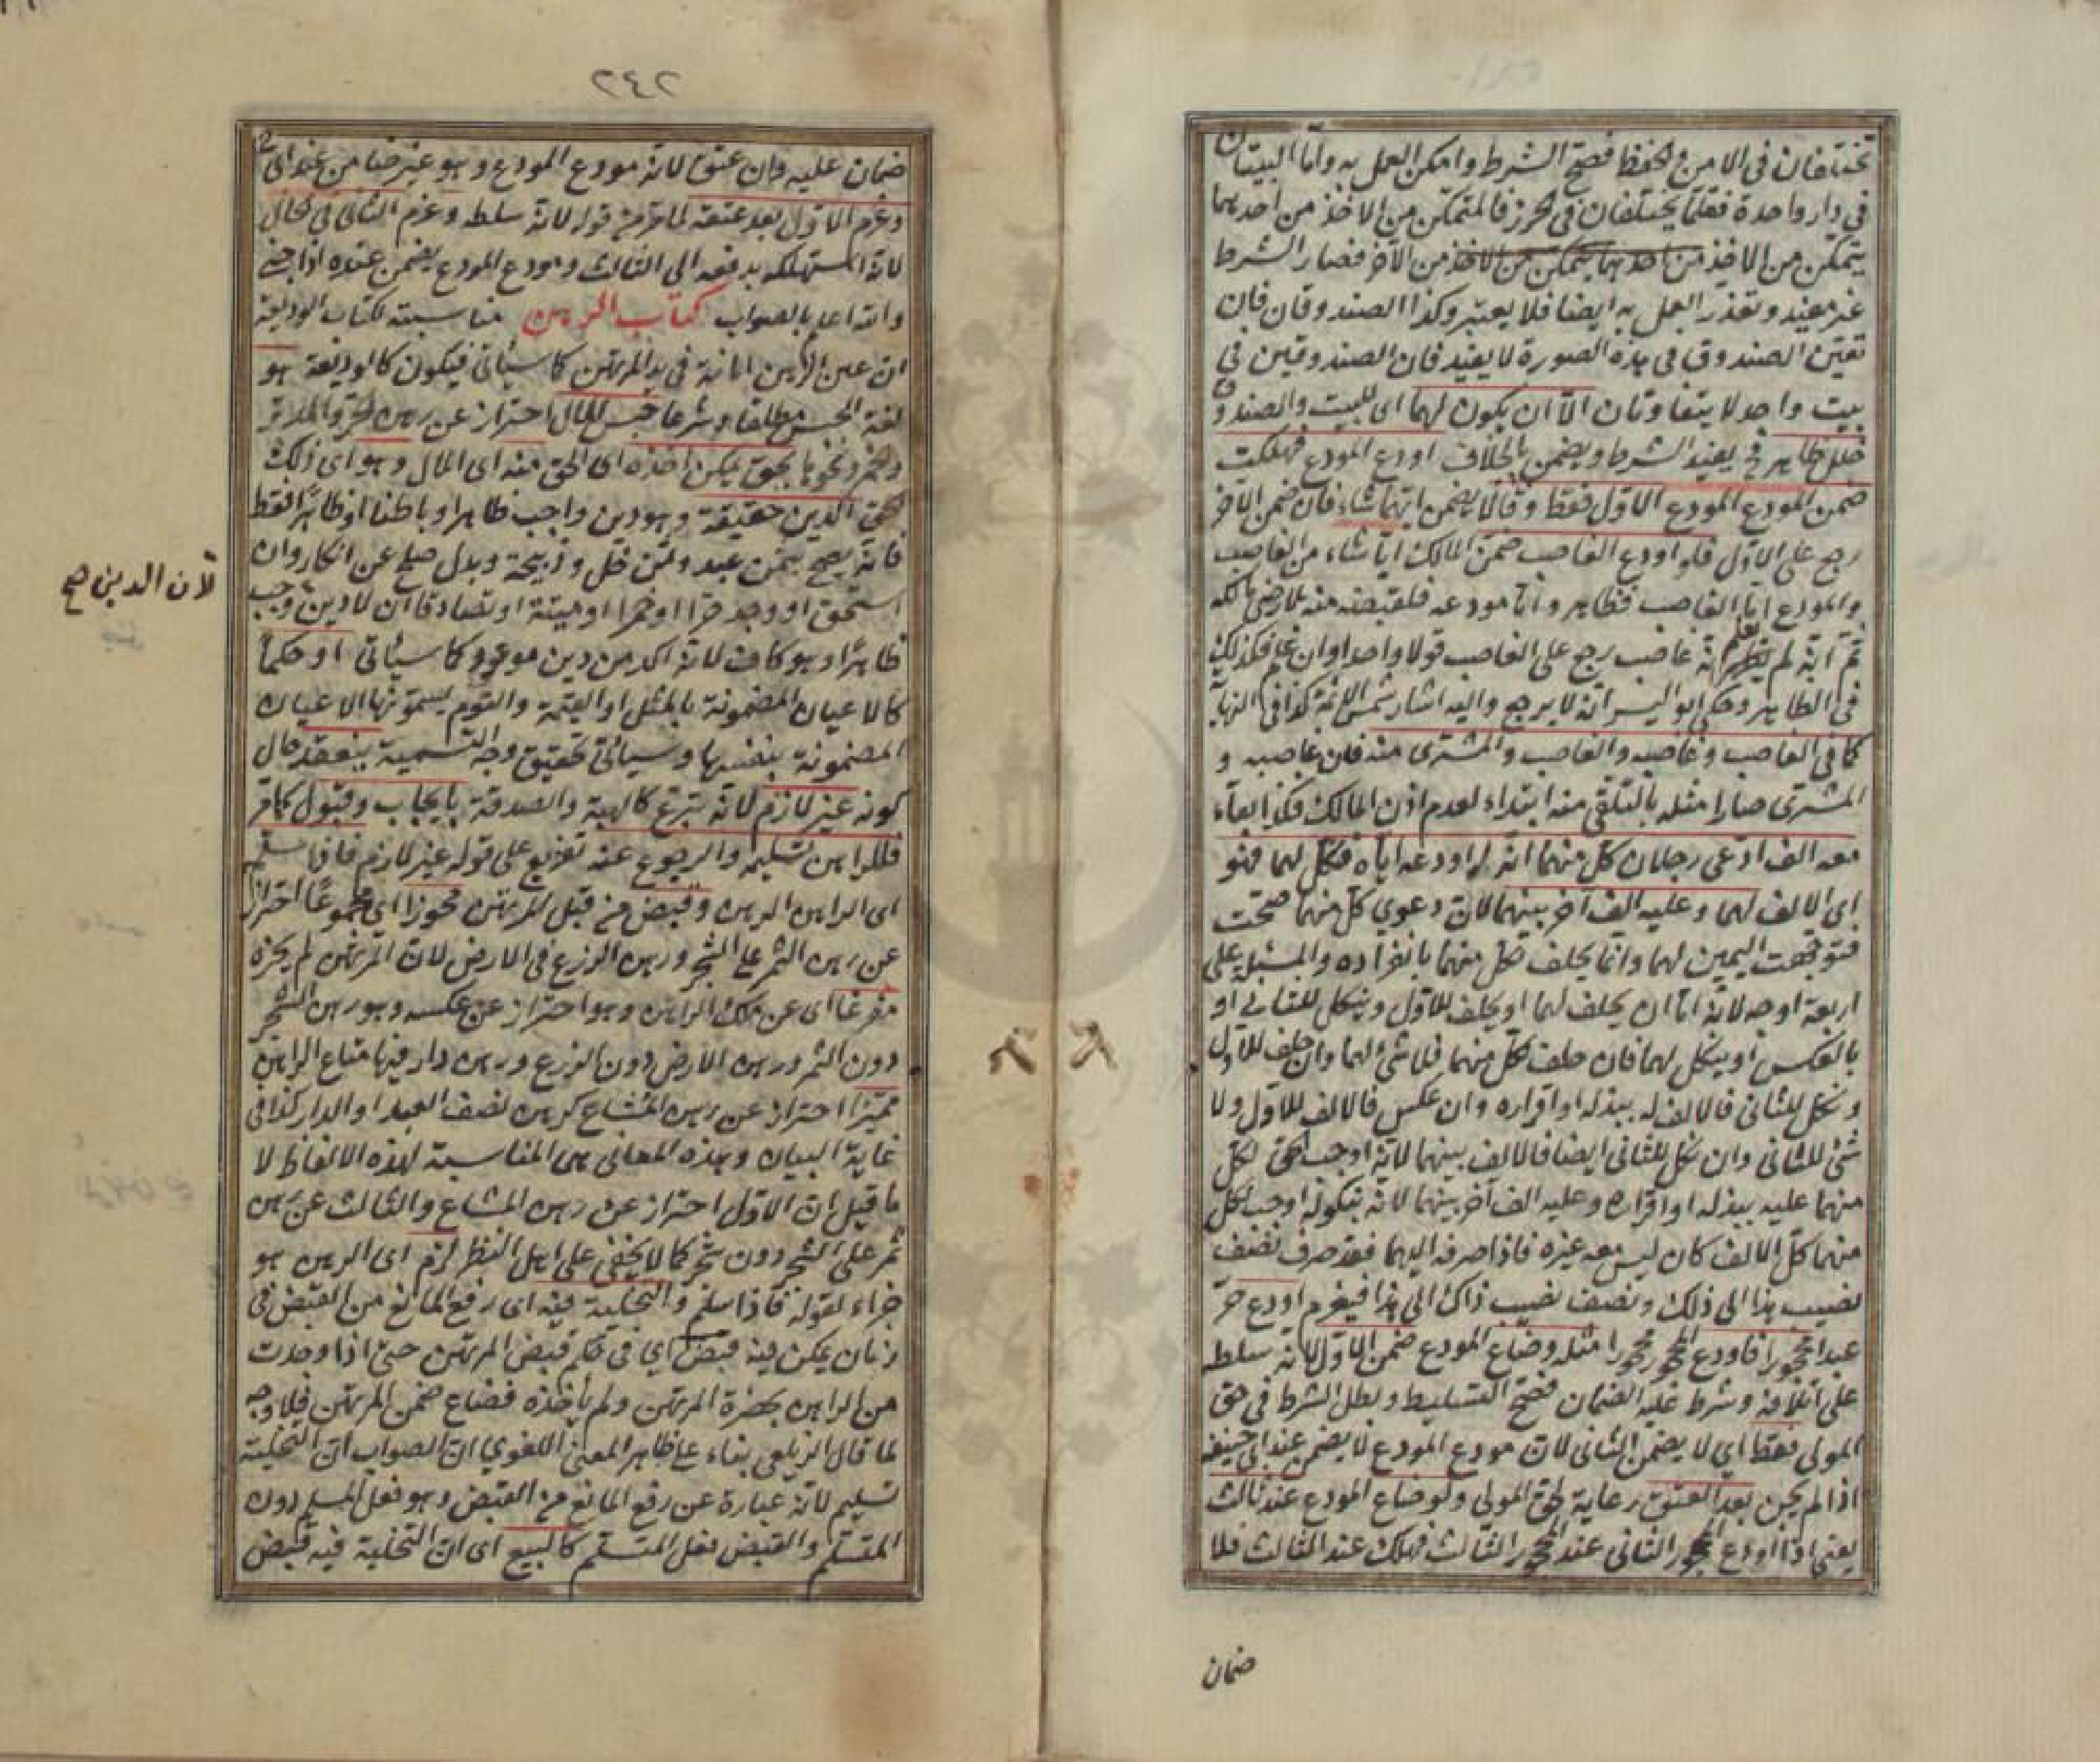 تختلفان فى الامن والحفظ فصح الشرط وامكن العمل به واما البيتان
فى دار واحدة فقلما يختلفان فى الحرز فالمتمكن من الاخذ من احدهما
يتمكن من الاخذ من الآخر فصار الشرط
غير مفيد وتعذر العمل به ايضا فلا يعتبر وكذا الصندوقان فان
تعيين الصندوق فى هذه الصورة لا يفيد فان الصندوقين فى
بيت واحد لا يتفاوتان الا ان يكون لهما اى للبيت والصندوق
خلل ظاهر فح يفيد الشرط ويضمن بالخلاف اودع المودع فهلكت
ضمن المودع المودع الاول فقط وقالا يضمن ايهما شاء فان ضمن الآخر
رجع على الاول فلو اودع الغاصب ضمن المالك ايا شاء من الغاصب
والمودع اما الغاصب فظاهر واما مودعه فلقبضه منه بلا رضى مالكه
ثم انه لم يعلم انه غاصب رجع على الغاصب قولا واحدا وان علم فكذلك
فى الظاهر وحكى ابو اليسر انه لا يرجع واليه اشار شمس الائمة كذا فى النهاية
كما فى الغاصب وغاصبه والغاصب والمشترى منه فان غاصبه و
المشترى صارا مثله بالتلقى منه ابتداء لعدم اذن المالك فكذا بقاء
معه الف ادعى رجلان كل منهما انه له اودعه اياه فنكل لهما فهو
اى الالف لهما وعليه الف آخر بينهما لان دعوى كل منهما صحت
فتوجهت اليمين لهما وانما يحلف لكل منهما بانفراده والمسئلة على
اربعة اوجه لانه اما ان يحلف لهما او يحلف للاول وينكل للثانى او
بالعكس او ينكل لهما فان حلف لكل منهما فلا شئ لهما وان حلف للاول
ونكل للثانى فالالف له ببذله او اقراره وان عكس فالالف للاول ولا
شئ للثانى وان نكل للثانى ايضا فالالف بينهما لانه اوجب الحق لكل
منهما عليه ببذله او اقراره وعليه الف آخر بينهما لانه بنكوله اوجب لكل
منهما كل الالف كان ليس معه غيره فاذا صرفه اليهما فقد صرف نصف
نصيب هذا الى ذلك ونصف نصيب ذاك الى هذا فيغرم اودع حر
عبدا محجورا فاودع المحجور محجورا مثله وضاع المودع ضمن الاول لانه سلطه
على اتلافه وشرط عليه الضمان فصح التسليط وبطل الشرط فى حق
المولى فقط اى لا يضمن الثانى لان مودع المودع لا يضمن عند ابى حنيفة
اذا لم يكن بعد العتق رعاية لحق المولى ولو ضاع المودع عند ثالث
يعنى اذا اودع المحجور الثانى عند المحجور الثالث فهلك عند الثالث فلا
ضمان
٢٤٢
ضمان عليه وان عتق لانه مودع المودع وهو غير ضامن عند ابى ح
وغرم الاول بعد عتقه لما مر من قوله لانه سلط وغرم الثانى فى الحال
لانه استهلكه بدفعه الى الثالث ومودع المودع يضمن عنده اذا جنى
والله اعلم بالصواب كتاب الرهن مناسبته لكتاب الوديعة
ان عين الرهن امانة فى يد المرتهن كما سيأتى فيكون كالوديعة هو
لغة الحبس مطلقا وشرعا حبس المال احتراز عن رهن الحر والمدبر
والخمر ونحوها بحق يمكن اخذه اى الحق منه اى المال وهو اى ذلك
الحق الدين حقيقة وهو دين واجب ظاهرا وباطنا او ظاهرا فقط
فانه يصح بثمن عبد وثمن خل وذبيحة وبدل صلح عن انكار وان
استحق او وجد حرا او خمرا او ميتة او تصادقا ان لا دين وجب
لان الدين صح
ظاهرا وهو كاف لانه اكد من دين موعود كما سيأتى او حكما
كالاعيان المضمونة بالمثل او القيمة والقوم يسمونها الاعيان
المضمونة بنفسها وسيأتى تحقيق وجه التسمية ينعقد حال
كونه غير لازم لانه تبرع كالهبة والصدقة بايجاب وقبول كما مر
فللراهن تسليمه والرجوع عنه تفريع على قوله غير لازم فاذا سلم
اى الراهن الرهن وقبض من قبل المرتهن محوزا اى مجموعا احتراز
عن رهن الثمر على الشجر ورهن الزرع فى الارض لان المرتهن لم يحزه
مفرغا اى عن ملك الراهن وهو احتراز عن عكسه وهو رهن الشجر
دون الثمر ورهن الارض دون الزرع ورهن دار فيها متاع الراهن
مميزا احتراز عن رهن المشاع كرهن نصف العبد او الدار كذا فى
غاية البيان وهذه المعانى هى المناسبة لهذه الالفاظ لا
ما قيل ان الاول احتراز عن رهن المشاع والثالث عن رهن
ثمر على الشجر دون شجر كما لا يخفى على اهل النظر لزم اى الرهن هو
جزاء لقوله فاذا سلم والتخلية فيه اى رفع المانع من القبض فى
زمان يمكن فيه قبض اى فى حكم قبض المرتهن حتى اذا وجدت
من الراهن بحضرة المرتهن ولم يأخذه فضاع ضمن المرتهن فلا وجه
لما قال الزيلعى بناء على ظاهر المعنى اللغوى ان الصواب ان التخلية
تسليم لانه عبارة عن رفع المانع من القبض وهو فعل المسلم دون
المتسلم والقبض فعل المتسلم كالبيع اى ان التخلية فيه قبض